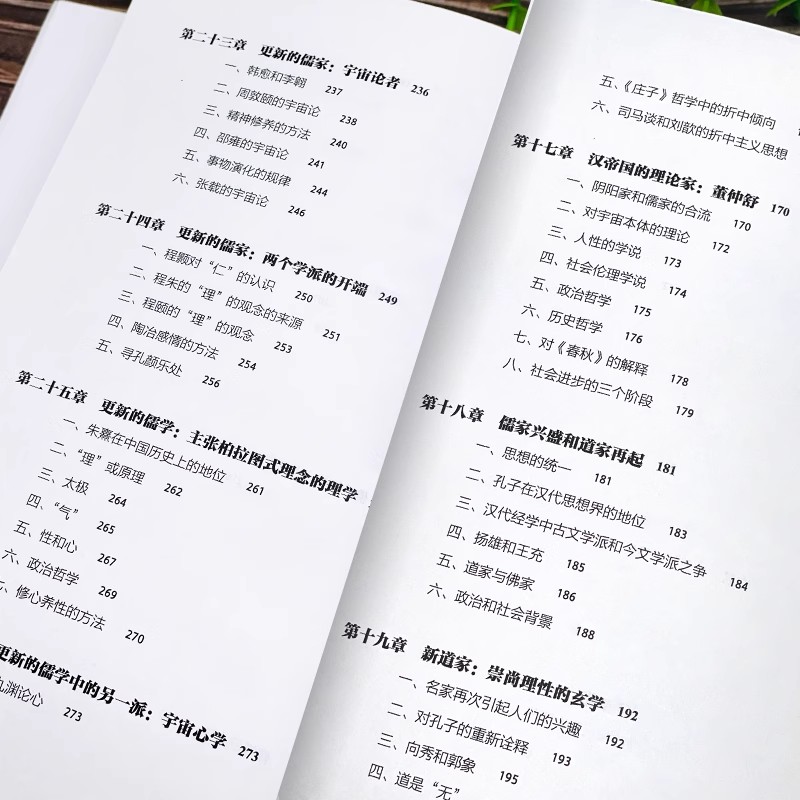 第二十三章 更新的儒家：宇宙论者 236
一、韩愈和李翱 237
二、周敦颐的宇宙论 238
三、精神修养的方法 240
四、邵雍的宇宙论 241
五、事物演化的规律 244
六、张载的宇宙论 246
第二十四章 更新的儒家：两个学派的开端 249
一、程颢对“仁”的认识 250
二、程朱的“理”的观念的来源 251
三、程颐的“理”的观念 253
四、陶冶感情的方法 254
五、寻孔颜乐处 256
第二十五章 更新的儒学：主张柏拉图式理念的理学
一、朱熹在中国历史上的地位 261
二、“理”或原理 262
三、太极 264
四、“气” 265
五、性和心 267
六、政治哲学 269
、修心养性的方法 270
更新的儒学中的另一派：宇宙心学 273
九渊论心 273
五、《庄子》哲学中的折中倾向
六、司马谈和刘歆的折中主义思想
第十七章 汉帝国的理论家：董仲舒 170
一、阴阳家和儒家的合流 170
二、对宇宙本体的理论 172
三、人性的学说 173
四、社会伦理学说 174
五、政治哲学 175
六、历史哲学 176
七、对《春秋》的解释 178
八、社会进步的三个阶段 179
第十八章 儒家兴盛和道家再起 181
一、思想的统一 181
二、孔子在汉代思想界的地位 183
三、汉代经学中古文学派和今文学派之争 184
四、扬雄和王充 185
五、道家与佛家 186
六、政治和社会背景 188
第十九章 新道家：崇尚理性的玄学 192
一、名家再次引起人们的兴趣 192
二、对孔子的重新诠释 193
三、向秀和郭象 195
四、道是“无”